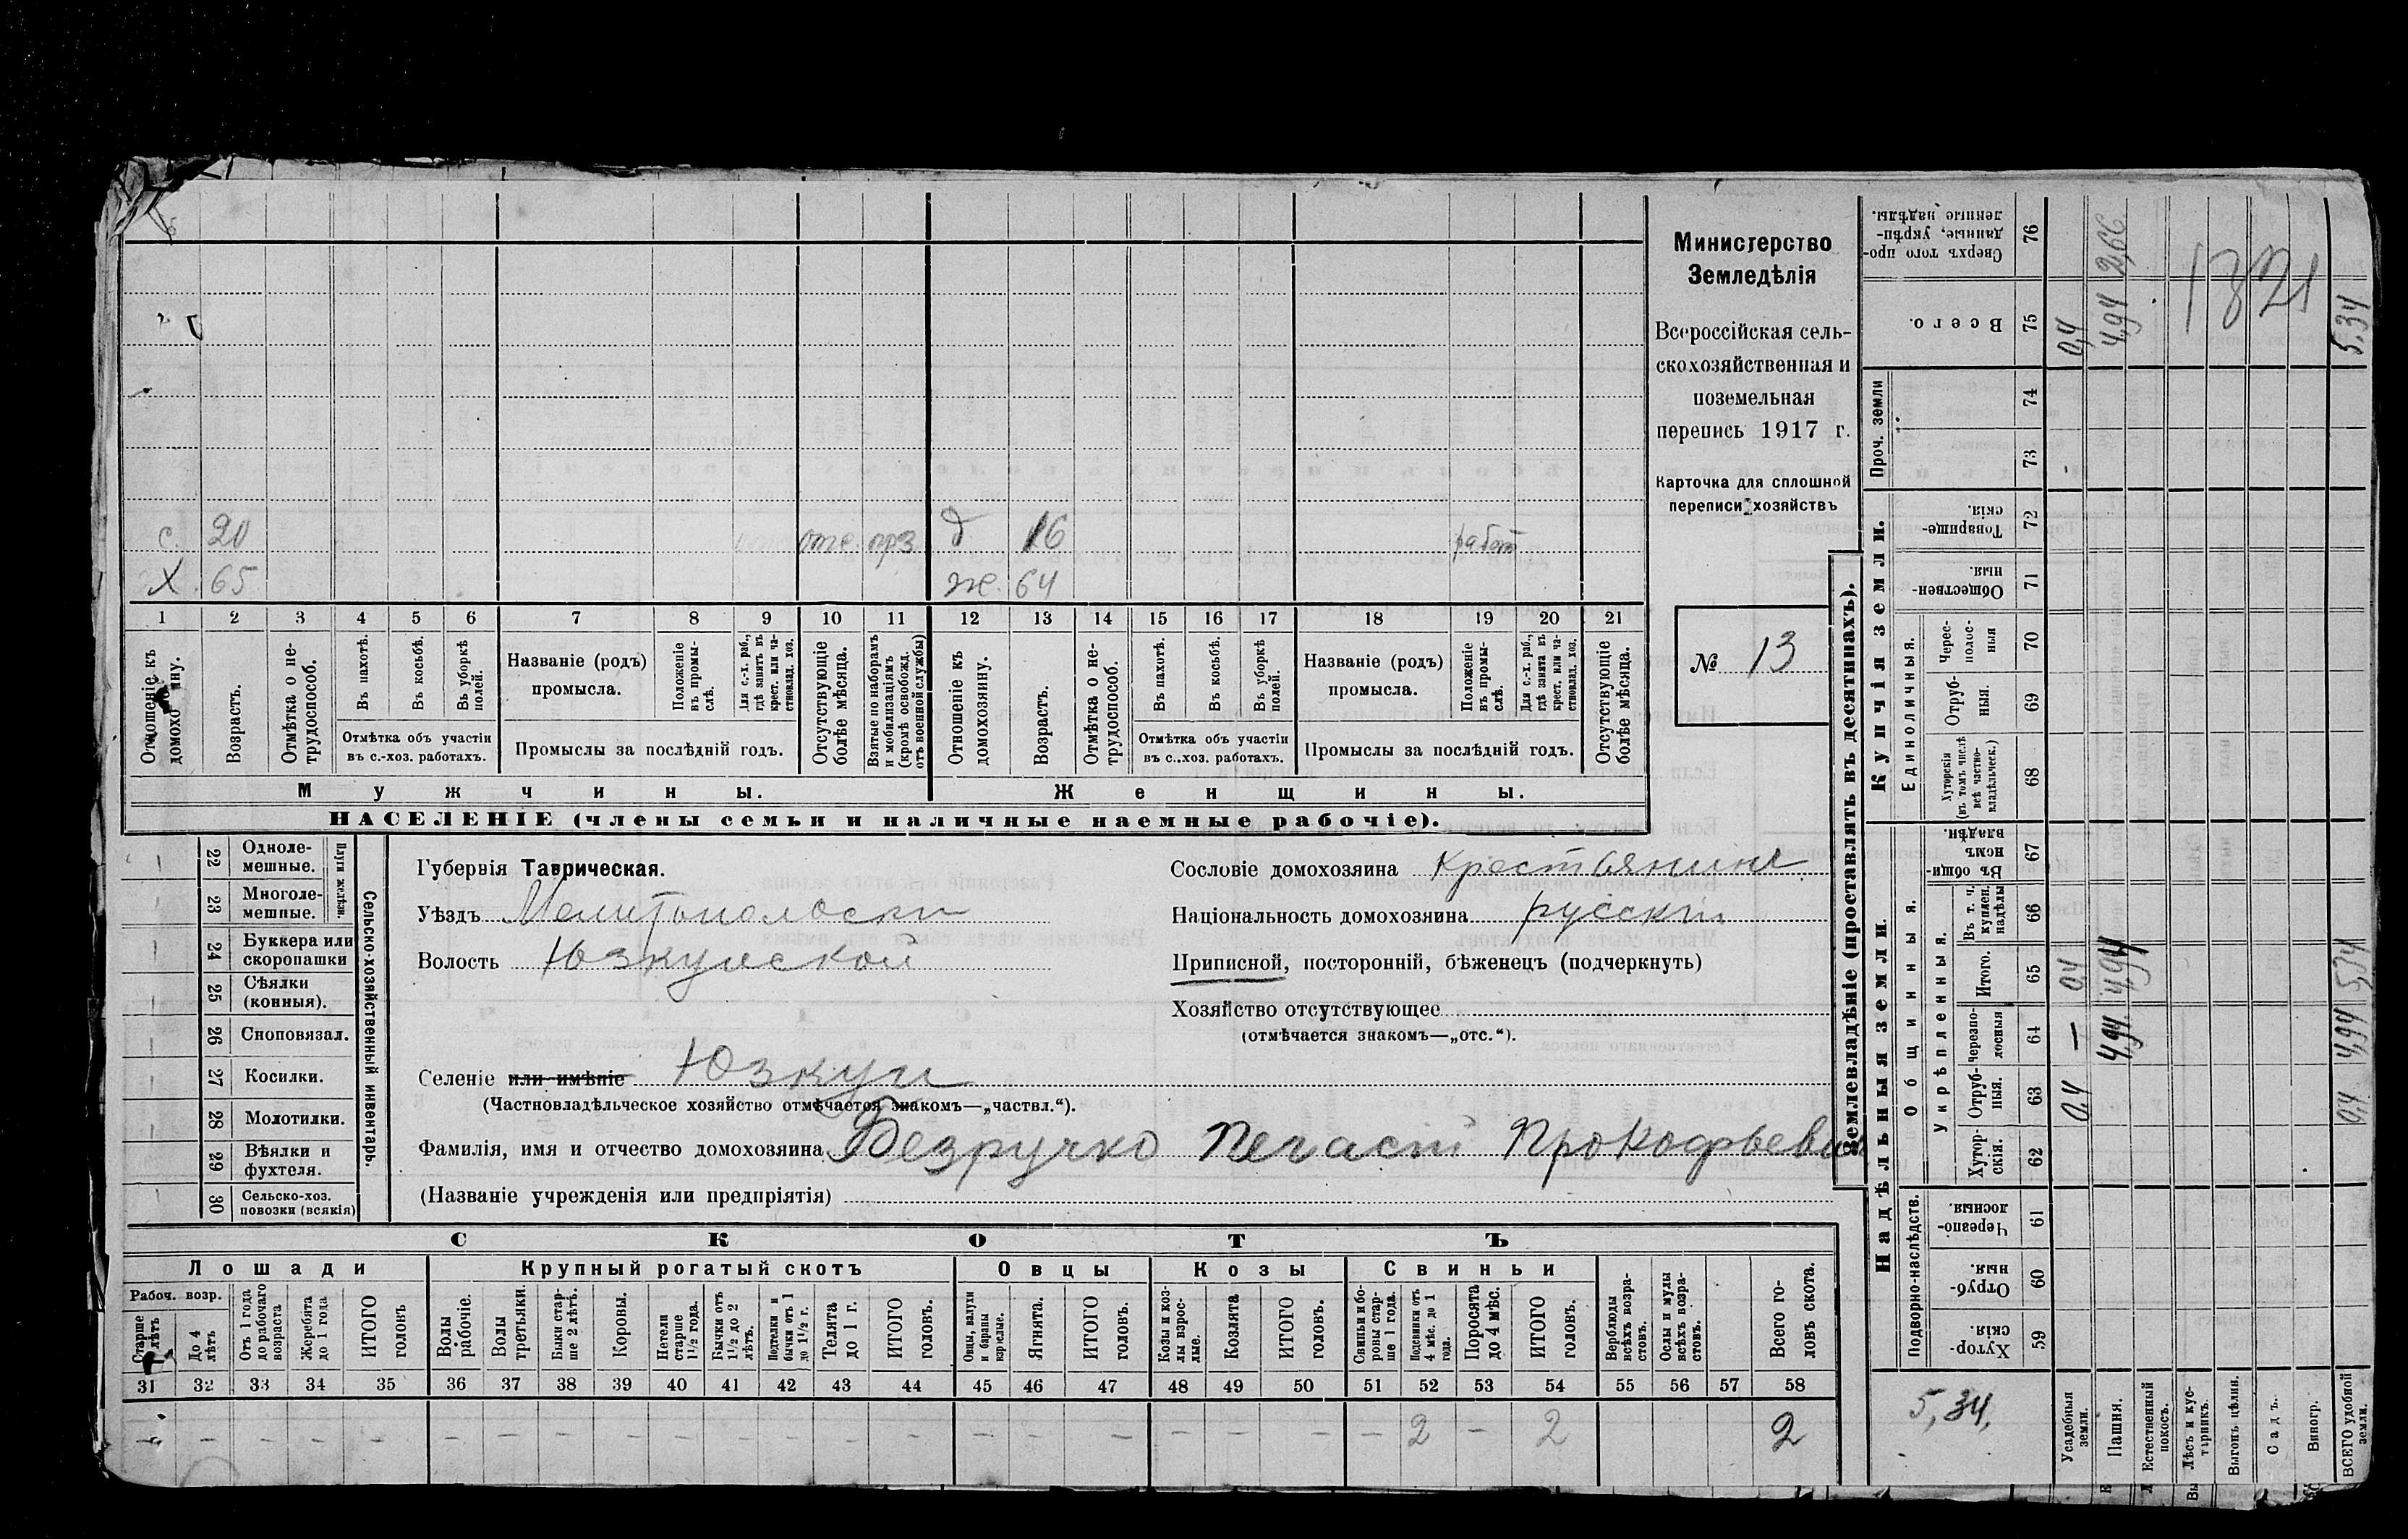 Министерство
Земледѣлія
Всероссійская сель-
скохозяйственная и
поземельная
перепись 1917 г.
Карточка для сплошной
переписи хозяйствъ
№ 13
с. 20 отс. прз д 16 работ
Х. 65 ж. 64
1 2 3 4 5 6 7 8 9 10 11 12 13 14 15 16 17 18 19 20 21
Отношеніе къ домохозяину.
Возрастъ.
Отмѣтка о не-трудоспособ.
Въ пахотѣ.
Въ косьбѣ.
Въ уборкѣ полей.
Отмѣтка объ участіи
въ с.-хоз. работахъ.
Названіе (родъ)
промысла.
Положеніе въ промы-слѣ.
Для с.-х. раб., гдѣ занятъ въ крест. или ча-стновлад. хоз.
Промыслы за послѣдній годъ.
Отсутствующіе болѣе мѣсяца.
Взятые по наборамъ и мобилизаціямъ (кромѣ освобожд. отъ военной службы)
Отношеніе къ домохозяину.
Возрастъ.
Отмѣтка о не-трудоспособ.
Въ пахотѣ.
Въ косьбѣ.
Въ уборкѣ полей.
Отмѣтка объ участіи
въ с.-хоз. работахъ.
Названіе (родъ)
промысла.
Положеніе въ промы-слѣ.
Для с.-х. раб., гдѣ занята въ крест. или ча-стновлад. хоз.
Промыслы за послѣдній годъ.
Отсутствующіе болѣе мѣсяца.
Мужчины. Женщины.
НАСЕЛЕНІЕ (члены семьи и наличные наемные рабочіе).
Сельско-хозяйственный инвентарь.
Плуги желѣзн.
22 Одноле-мешные.
23 Многоле-мешные.
24 Буккера или скоропашки
25 Сѣялки (конныя).
26 Сноповязал.
27 Косилки.
28 Молотилки.
29 Вѣялки и фухтеля.
30 Сельско-хоз. повозки (всякія)
Губернія Таврическая.
Уѣздъ Мелитопольски
Волость Юзкуйской
Селеніе или имѣніе Юзкуи
(Частновладѣльческое хозяйство отмѣчается знакомъ—„частвл.“).
Фамилія, имя и отчество домохозяина Безручко Прокофьеви
(Названіе учрежденія или предпріятія)
Сословіе домохозяина Крестьянинъ
Національность домохозяина русскій
Приписной, посторонній, бѣженецъ (подчеркнуть)
Хозяйство отсутствующее
(отмѣчается знакомъ—„отс.“).
СКОТЪ
Лошади Крупный рогатый скотъ Овцы Козы Свиньи
Рабоч. возр.
Старше лѣтъ
До 4 лѣтъ
Отъ 1 года до рабочаго возраста
Жеребята до 1 года
ИТОГО головъ
Волы рабочіе.
Волы третьяки.
Быки стар-ше 2 лѣтъ.
Коровы.
Нетели старше 1½ года.
Бычки отъ 1½ до 2 лѣтъ.
Подтелки и бычки отъ 1 до 1½ г.
Телята до 1 г.
ИТОГО головъ.
Овцы, валухи и бараны взрослые.
Ягнята.
ИТОГО головъ.
Козы и коз-лы взрос-лые.
Козлята
ИТОГО головъ.
Свиньи и бо-ровы стар-ше 1 года.
Подсвинки отъ 4 мѣс. до 1 года.
Поросята до 4 мѣс.
ИТОГО головъ.
Верблюды всѣхъ возра-стовъ.
Ослы и мулы всѣхъ возра-стовъ.
Всего го-ловъ скота.
31 32 33 34 35 36 37 38 39 40 41 42 43 44 45 46 47 48 49 50 51 52 53 54 55 56 57 58
– – – – – – – – – – – – – – – – – – – – – 2 – 2 2
Землевладѣніе (проставлять въ десятинахъ).
Надѣльныя земли.
Купчія земли.
Проч. земли
Подворно-наслѣдств.
Общинныя.
Укрѣпленныя.
Единоличныя.
59 Хутор-скія
60 Отруб-ныя.
61 Черезпо-лосныя.
62 Хутор-скія.
63 Отруб-ныя.
64 Черезпо-лосныя
65 Итого.
66 Въ т. ч. куплен. надѣлы
67 Въ общин-номъ владѣн.
68 Хуторскія (въ томъ числѣ всѣ частно-владѣльческ.)
69 Отруб-ныя.
70 Черес-полос-ныя
71 Обществен-ныя.
72 Товарище-скія.
73
74
75 Всего.
76 Сверхъ того про-данные, укрѣп-ленные надѣлы.
5,34.
Усадебныя земли. 0,4 – 0,4 0,4
Пашня. 4,94 4,94 4,94 2,66
Естественный покосъ.
Лѣсъ и кус-тарникъ.
Выгонъ цѣлин.
Садъ.
Виногр.
ВСЕГО удобной земли. 0,4 4,94 5,34 5,34
1821